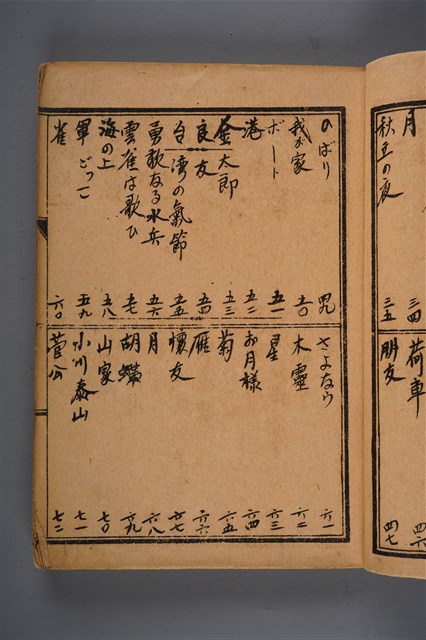 月 三四
秋立の夜 三五
荷車 四六
朋友 四七
のばり 四九
我が家 五〇
ボート 五一
港 五二
金太郎 五三
良友 五四
台湾の氣節 五五
勇敢なる水兵 五六
雲雀は歌ひ 五七
海の上 五八
軍ごっこ 五九
雀 六〇
さよなら 六一
木靈 六二
星 六三
お月様 六四
菊 六五
雁 六六
懐友 六七
月 六八
胡蝶 六九
山家 七〇
小川泰山 七一
菅公 七二